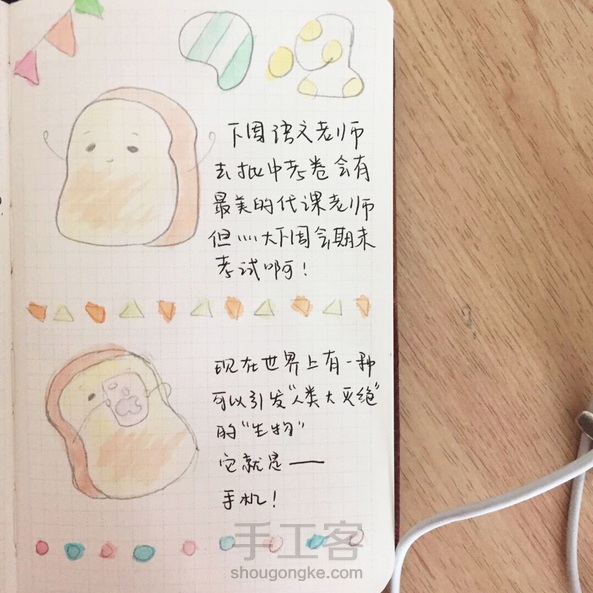 下周语文老师
去批中考卷会有
最美的代课老师
但……大下周会期末
考试啊!
现在世界上有一种
可以引发"人类大灭绝"
的"生物"
它就是——
手机!
手工客
shougongke.com